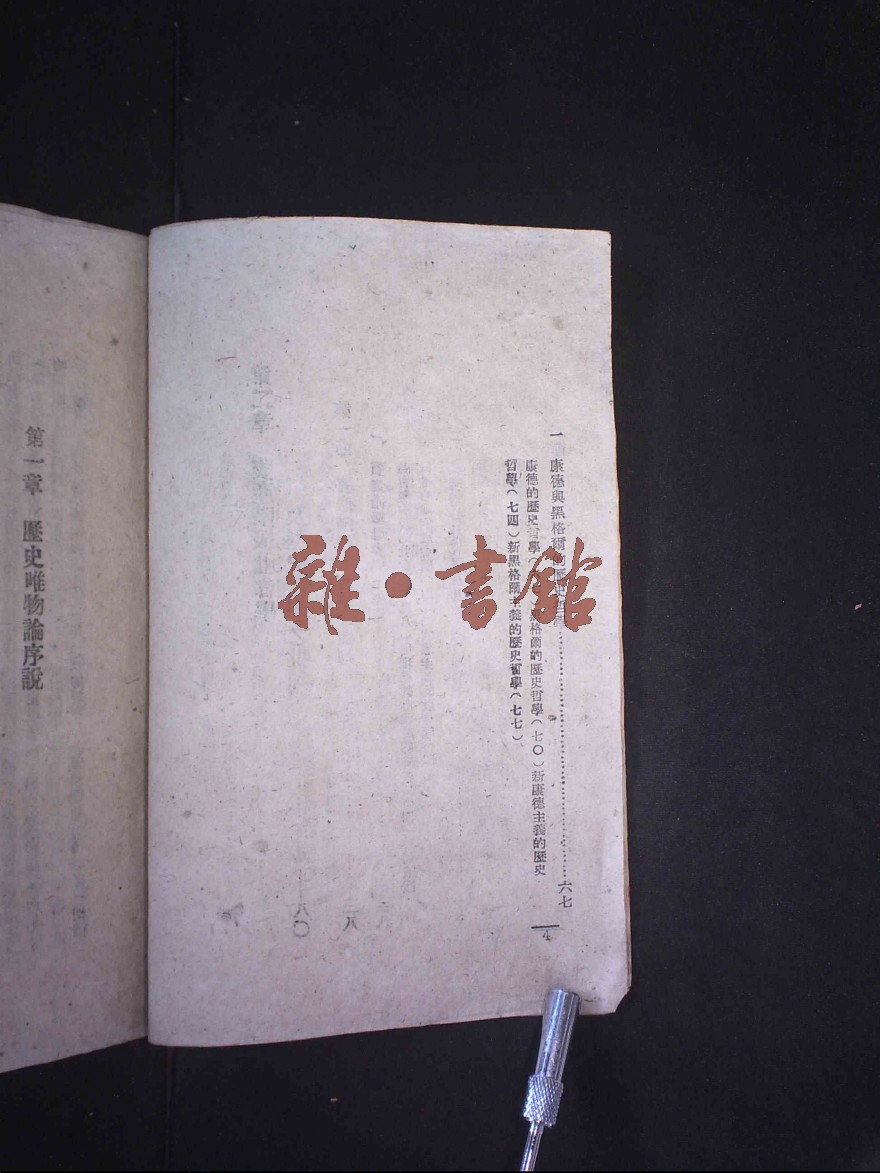 一 康德與黑格爾的歷史哲學……六七
康德的歷史哲學(格爾的歷史哲學(七〇)新康德主義的歷史
哲學(七四)新黑格爾主義的歷史哲學(七七)
4
第一章 歷史唯物論序說
雜·書館